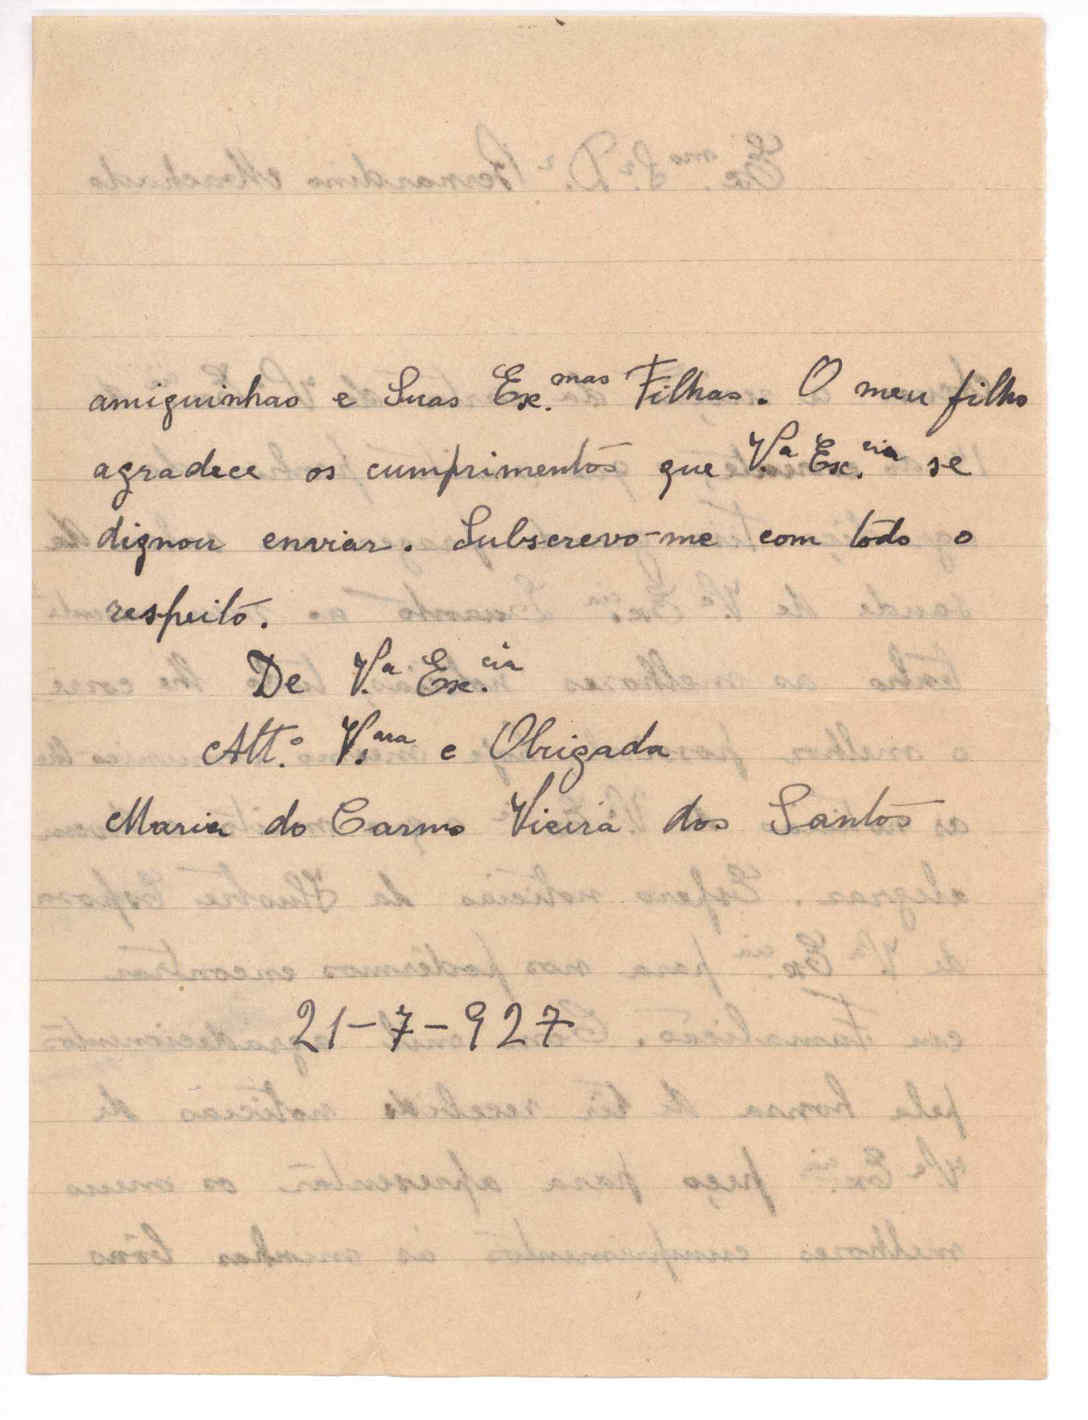 amiguinhas e Suas Ex.mas Filhas. O meu filho
agradece os cumprimentos que V.a Ex.cia se
dignou enviar. Subscrevo-me com todo o
respeito.
De V.a Ex.cia
Att.o V.ora e Obrigada
Maria do Carmo Vieira dos Santos
21-7-927